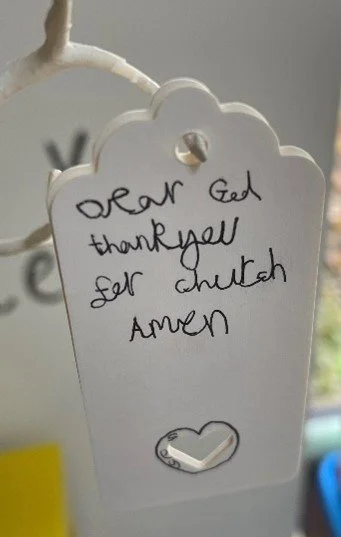 Dear God
thankyou
for church
Amen